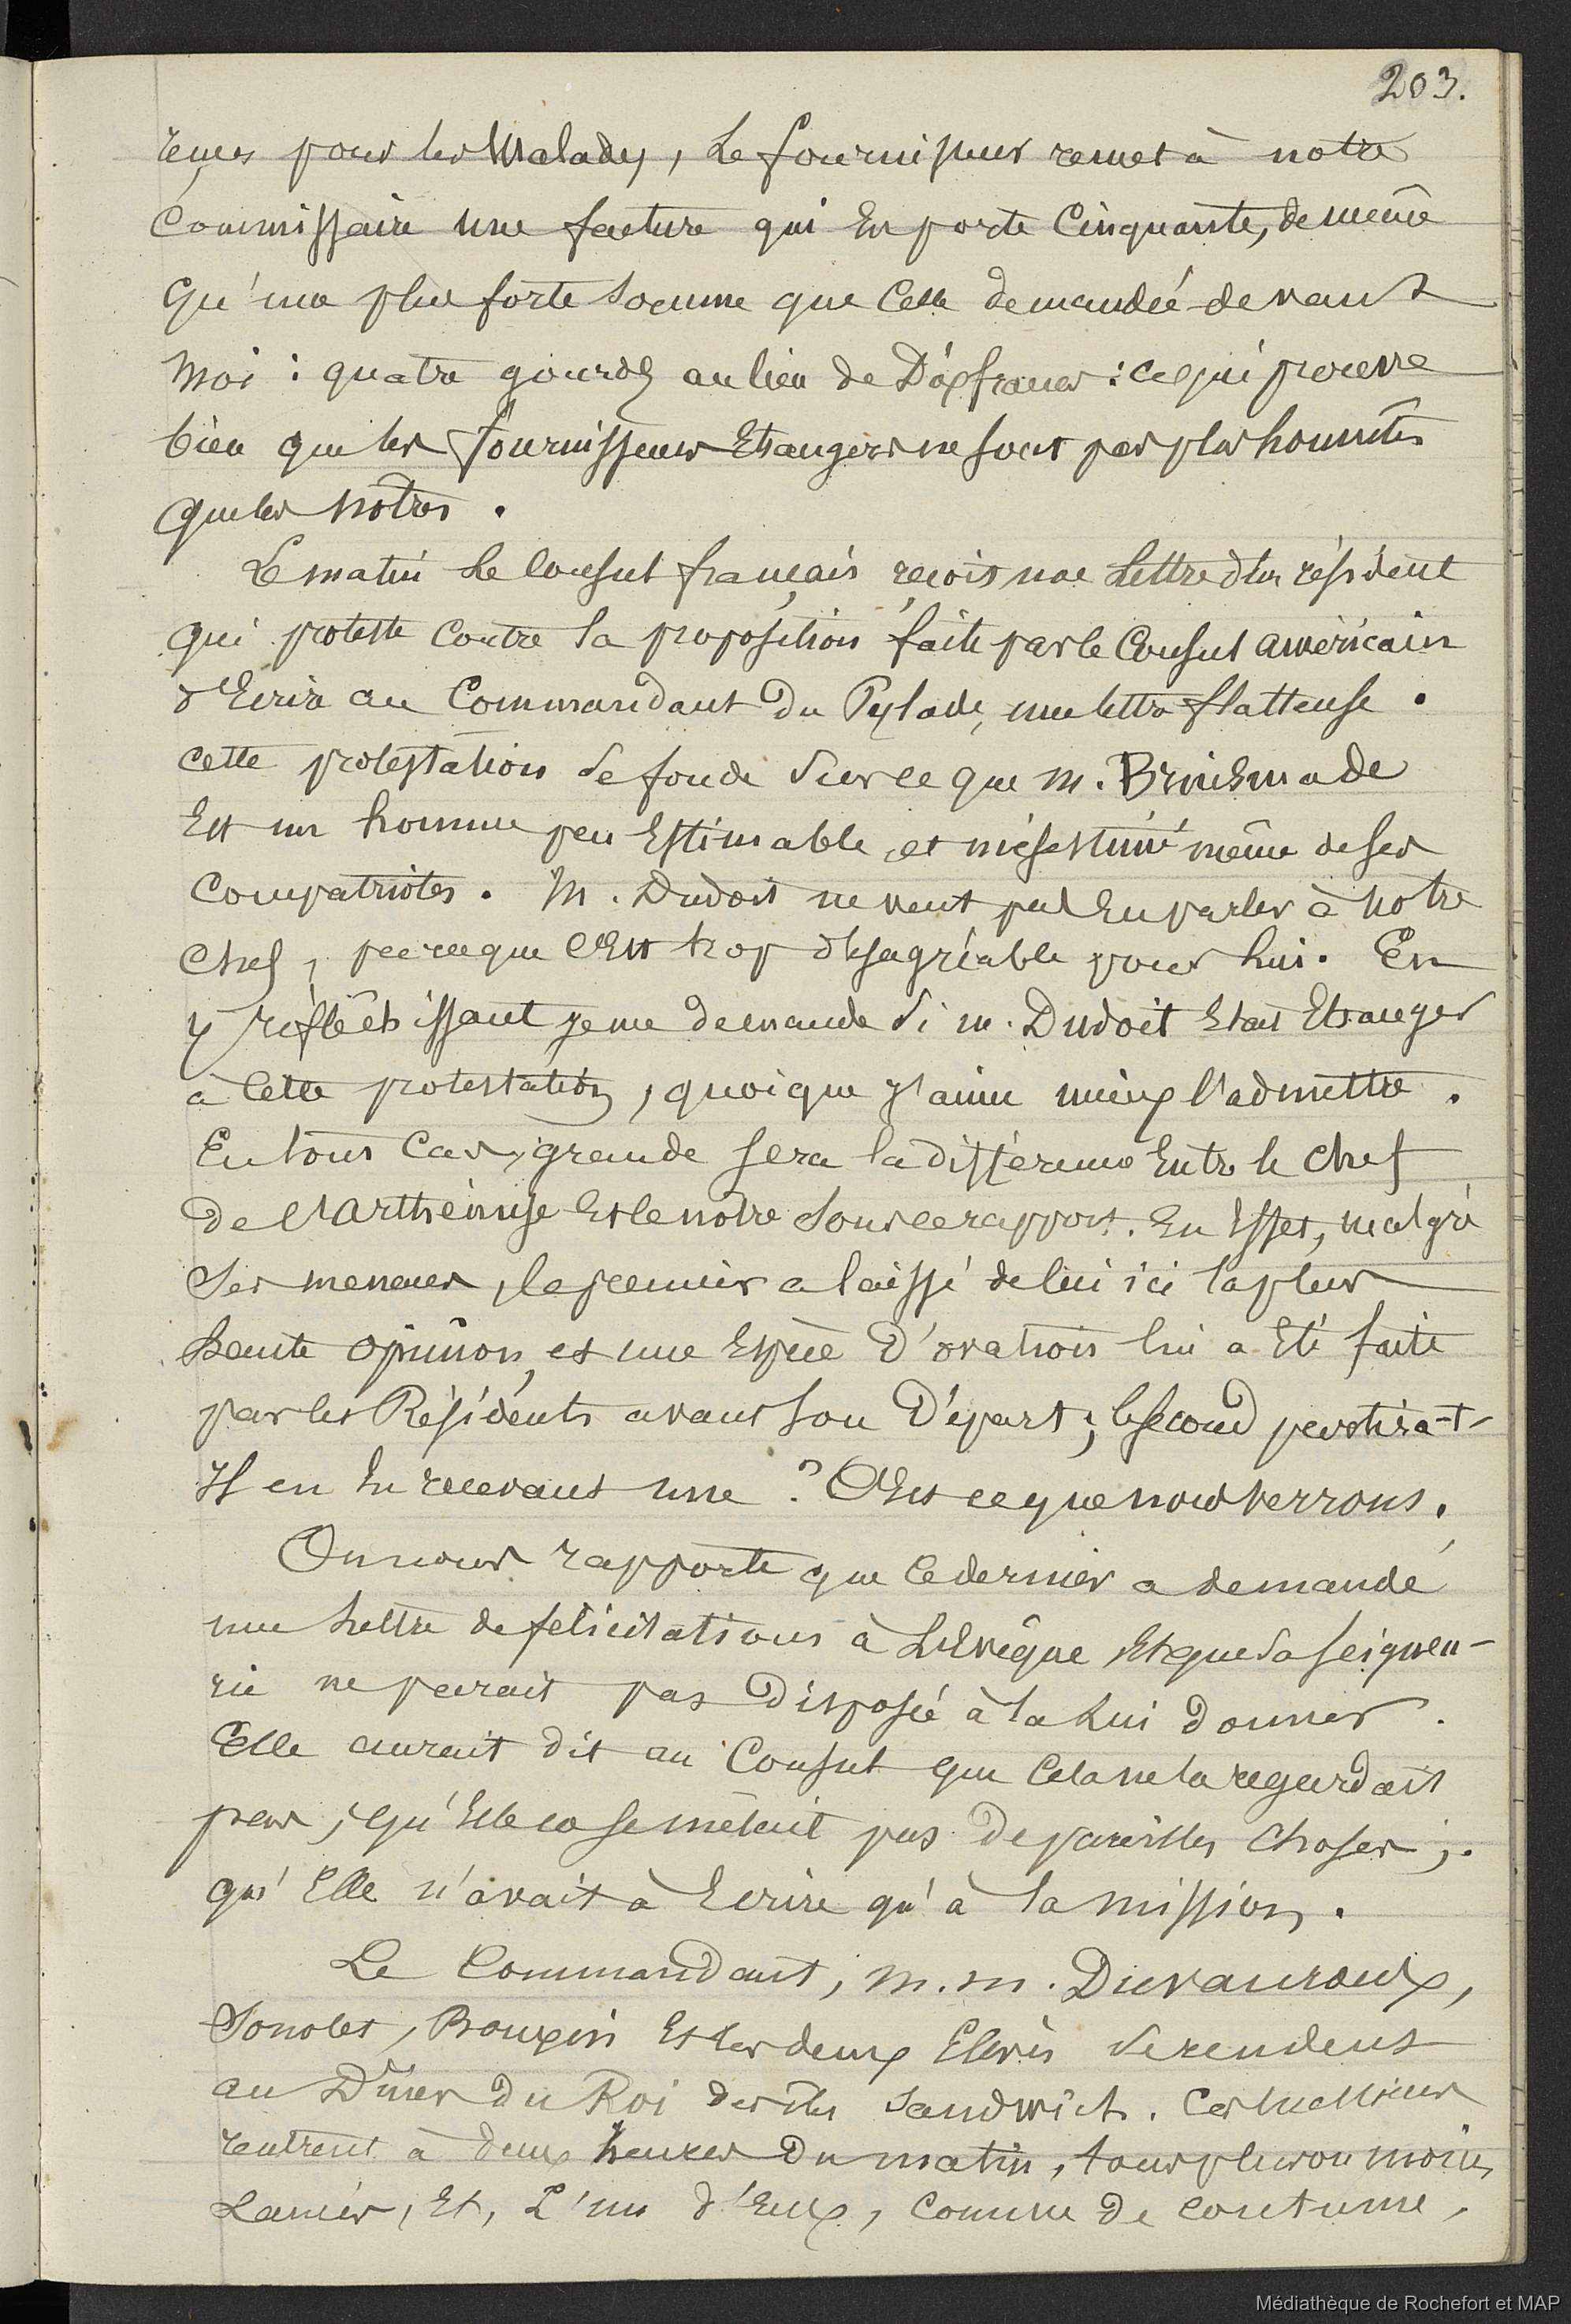 203.
reçues pour les Malades, le fournisseur remet à notre
Commissaire une facture qui en porte Cinquante, de même
qu'une plus forte somme que celle demandée devant
moi : quatre gourdes au lieu de Dix francs : ce qui prouve
bien que les fournisseurs Etrangers ne sont pas plus honnêtes
que les nôtres.
Le matin le Consul français reçoit une Lettre d'un résident
qui proteste contre la proposition faite par le Consul américain
d'Ecrire au Commandant du Pylade, une lettre flatteuse.
cette protestation se fonde sur ce que m. Brinsmade
Est un homme peu Estimable, et mésestimé même de ses
Compatriotes. M. Dudoit ne veut pas en parler à notre
chef, parce que c'Est trop désagréable pour lui. En
y réfléchissant je me demande si m. Dudoit Etait Etranger
à Cette protestation, quoique j'aime mieux l'admettre.
En tous Cas, grande sera la différence Entre le Chef
de l'Arthémise et le notre sous ce rapport. En Effet, malgré
ses menaces, le premier a laissé de lui ici la plus
haute opinion, et une Espèce d'ovation lui a Eté faite
par les Résidents avant son Départ ; le second partira-t-
Il en en recevant une ? C'Est ce que nous verrons.
On nous rapporte que ce dernier a demandé
une Lettre de félicitations à L'Evêque Et que sa seigneu-
rie ne parait pas Disposée à la lui donner.
Elle aurait dit au Consul que Cela ne la regardait
pas ; qu'Elle ne se mêlait pas de pareilles choses ;
qu'Elle n'avait à Ecrire qu'à la mission.
Le Commandant, m.m. Duvauroux,
Sonolet, Et les deux Elèves se rendent
au Dîner du Roi des îles Sandwich. Ces Messieurs
rentrent à deux heures du matin, tous plus ou moins
Lancés, Et, L'un d'Eux, comme de coutume,
Médiathèque de Rochefort et MAP